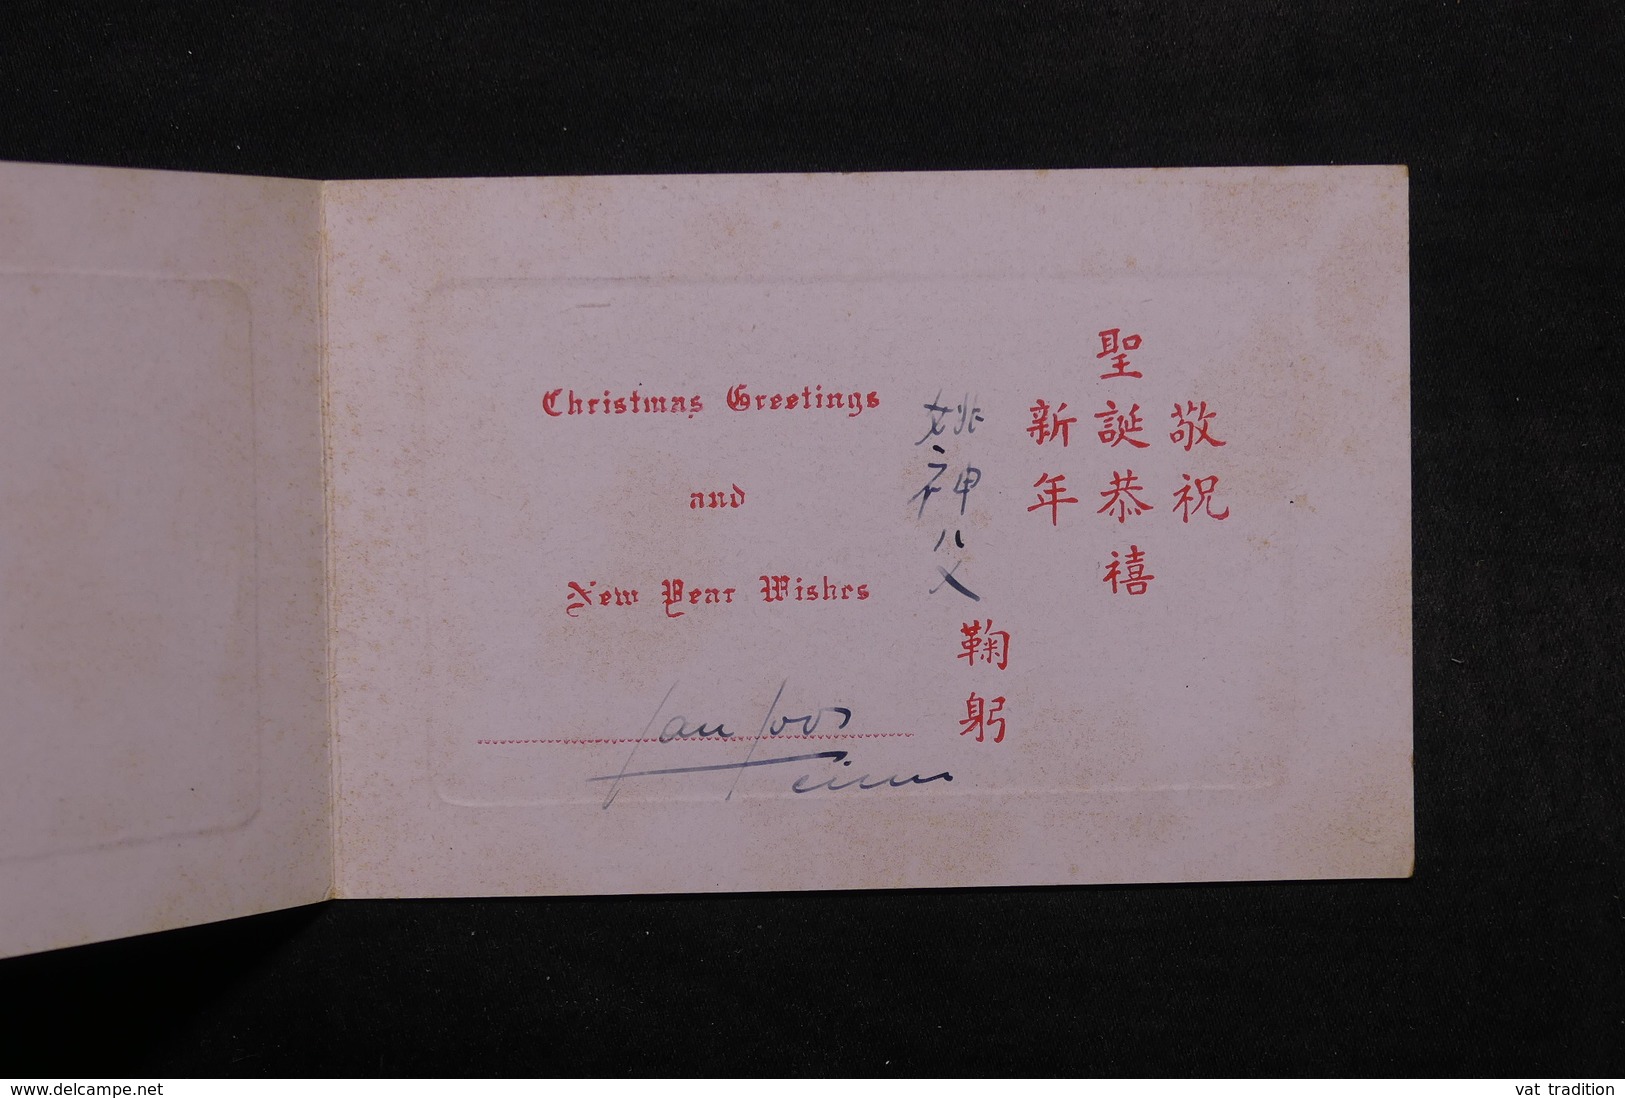 Christmas Greetings
and
New Year Wishes
敬祝
聖誕恭禧
新年
姚神父
鞠躬
Jan Joos
www.delcampe.net
vat tradition